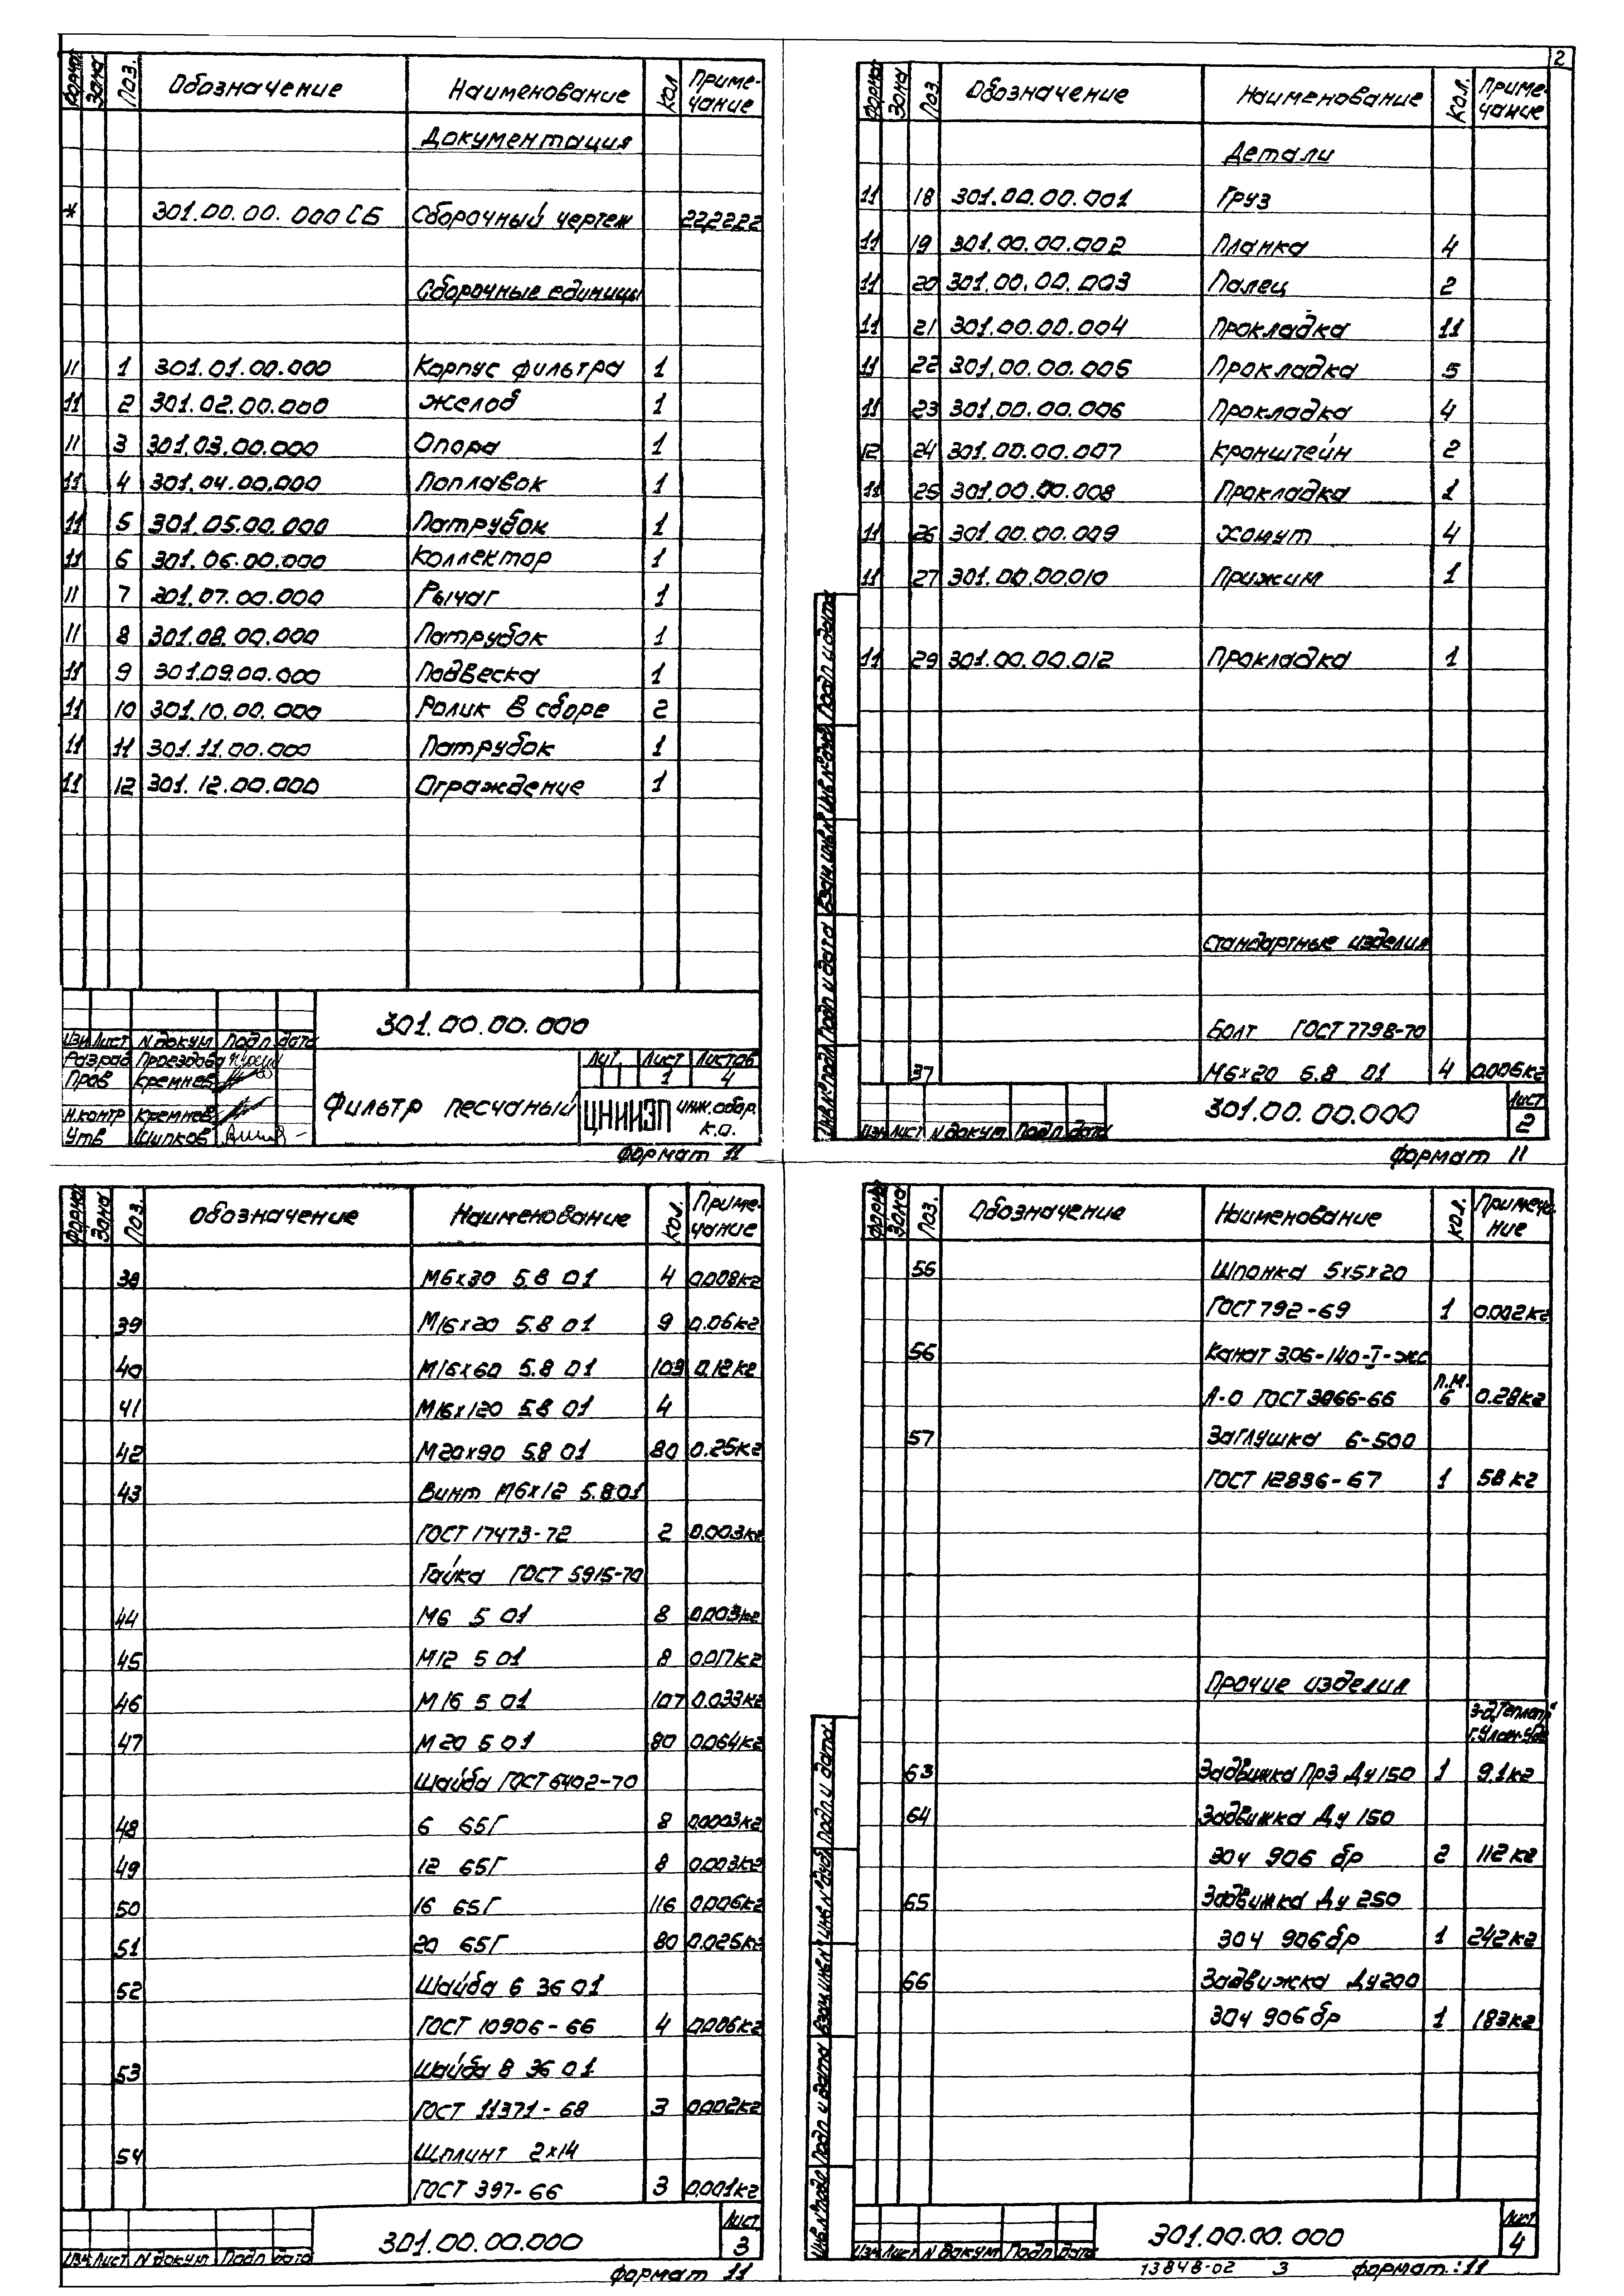 2
Формат Зона Поз. Обозначение Наименование Кол Приме-
чание
Документация
* 301.00.00.000СБ Сборочный чертеж 22,22,22
Сборочные единицы
11 1 301.01.00.000 Корпус фильтра 1
11 2 301.02.00.000 Желоб 1
11 3 301.03.00.000 Опора 1
11 4 301.04.00.000 Поплавок 1
11 5 301.05.00.000 Патрубок 1
11 6 301.06.00.000 Коллектор 1
11 7 301.07.00.000 Рычаг 1
11 8 301.08.00.000 Патрубок 1
11 9 301.09.00.000 Подвеска 1
11 10 301.10.00.000 Ролик в сборе 2
11 11 301.11.00.000 Патрубок 1
11 12 301.12.00.000 Ограждение 1
301.00.00.000
Изм Лист N докум Подп дата
Разраб Проездова
Пров Кремнев
Н.контр Кремнев
Утв Шипков
Фильтр песчаный
Лит. Лист Листов
1 4
ЦНИИЭП инж.обор.
к.о.
Формат 11
Формат Зона Поз. Обозначение Наименование Кол. Приме-
чание
Детали
11 18 301.00.00.001 Груз
11 19 301.00.00.002 Планка 4
11 20 301.00.00.003 Палец 2
11 21 301.00.00.004 Прокладка 11
11 22 301.00.00.005 Прокладка 5
11 23 301.00.00.006 Прокладка 4
12 24 301.00.00.007 Кронштейн 2
11 25 301.00.00.008 Прокладка 1
11 26 301.00.00.009 Хомут 4
11 27 301.00.00.010 Прижим 1
11 29 301.00.00.012 Прокладка 1
Стандартные изделия
Болт ГОСТ 7798-70
37 М6х20 5.8 01 4 0.006кг
301.00.00.000
Лист
2
Изм Лист N докум Подп дата
Инв.№ подл Подп и дата Взам.инв.№ Инв.№ дубл Подп и дата
Формат 11
Формат Зона Поз. Обозначение Наименование Кол. Приме-
чание
38 М6х30 5.8 01 4 0.008кг
39 М16х20 5.8 01 9 0.06кг
40 М16х60 5.8 01 103 0.12кг
41 М16х120 5.8 01 4
42 М20х90 5.8 01 80 0.25кг
43 Винт М6х12 5.8.01
ГОСТ 17473-72 2 0.003кг
Гайка ГОСТ 5915-70
44 М6 5 01 8 0.003кг
45 М12 5 01 8 0.017кг
46 М16 5 01 107 0.033кг
47 М20 5 01 80 0.064кг
Шайба ГОСТ 6402-70
48 6 65Г 8 0.0003кг
49 12 65Г 8 0.003кг
50 16 65Г 116 0.006кг
51 20 65Г 80 0.025кг
52 Шайба 6 36 01
ГОСТ 10906-66 4 0.006кг
53 Шайба 8 36 01
ГОСТ 11371-68 3 0.002кг
54 Шплинт 2х14
ГОСТ 397-66 3 0.001кг
301.00.00.000
Лист
3
Изм Лист N докум Подп дата
Формат 11
Формат Зона Поз. Обозначение Наименование Кол. Примеча-
ние
56 Шпонка 5х5х20
ГОСТ 792-69 1 0.002кг
56 Канат 3.06-140-I-жс
Л-О ГОСТ 3066-66 П.М. 6 0.28кг
57 Заглушка 6-500
ГОСТ 12836-67 1 58кг
Прочие изделия
г.Улан-Удэ
63 Задвижка ПрЗ Ду150 1 9.1кг
64 Задвижка Ду 150
30ч 906 бр 2 112кг
65 Задвижка Ду 250
30ч 906бр 1 242кг
66 Задвижка Ду200
30ч 906бр 1 183кг
301.00.00.000
Лист
4
Изм Лист N докум Подп дата
Инв.№ подл Подп и дата Взам.инв.№ Инв.№ дубл Подп и дата
13848-02 3 Формат.:11